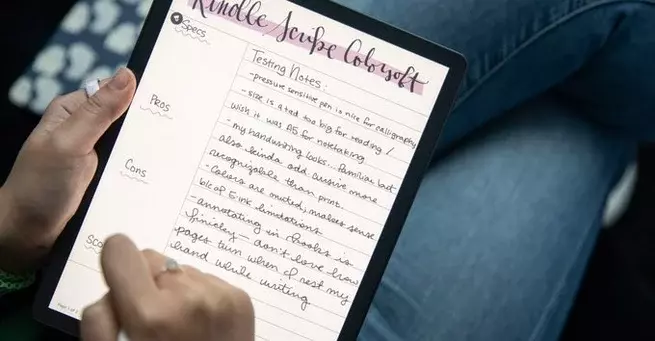 Kindle Scribe Colorsoft
Specs
Pros
Cons
Testing Notes:
-pressure sensitive pen is nice for calligraphy
-size is a tad too big for reading /
wish it was A5 for notetaking
-my handwriting looks familiar but
also kinda odd cursive more
recognizable than print.
-Colors are muted, makes sense
b/c of E ink limitations
-annotating in books is
finicky - don't love how
pages turn when I rest my
hand while writing